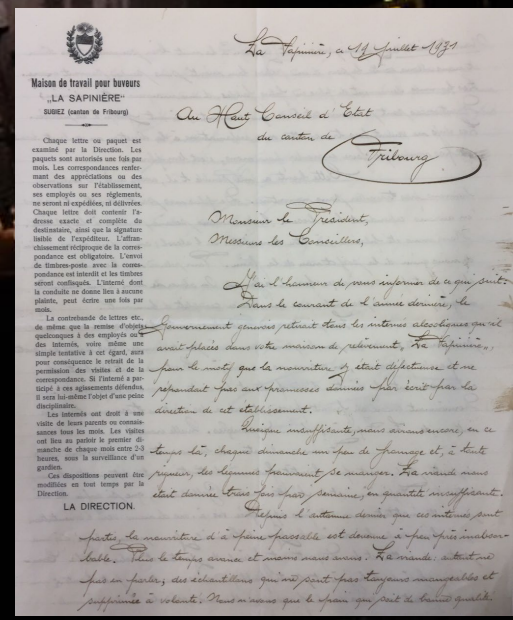 Maison de travail pour buveurs
„LA SAPINIÈRE"
SUGIEZ (canton de Fribourg)
Chaque lettre ou paquet est
examiné par la Direction. Les
paquets sont autorisés une fois par
mois. Les correspondances renfer-
mant des appréciations ou des
observations sur l'établissement,
ses employés ou ses règlements,
ne seront ni expédiées, ni délivrées.
Chaque lettre doit contenir l'a-
dresse exacte et complète du
destinataire, ainsi que la signature
lisible de l'expéditeur. L'affran-
chissement réciproque de la corres-
pondance est obligatoire. L'envoi
de timbres-poste avec la corres-
pondance est interdit et les timbres
seront confisqués. L'interné dont
la conduite ne donne lieu à aucune
plainte, peut écrire une fois par
mois.
La contrebande de lettres etc.,
de même que la remise d'objets
quelconques à des employés ou
des internés, voire même une
simple tentative à cet égard, aura
pour conséquence le retrait de la
permission des visites et de la
correspondance. Si l'interné a par-
ticipé à ces agissements défendus,
il sera lui-même l'objet d'une peine
disciplinaire.
Les internés ont droit à une
visite de leurs parents ou connais-
sances tous les mois. Les visites
ont lieu au parloir le premier di-
manche de chaque mois entre 2-3
heures, sous la surveillance d'un
gardien.
Ces dispositions peuvent être
modifiées en tout temps par la
Direction.
LA DIRECTION.
La Sapinière, ce 19 juillet 1931
Au Haut Conseil d'Etat
du canton de
Fribourg
Monsieur le Président,
Messieurs les Conseillers,
J'ai l'honneur de vous informer de ce qui suit.
Dans le courant de l'année dernière, le
Gouvernement genevois retirait tous les internés alcooliques qu'il
avait placés dans votre maison de relèvement, "La Sapinière"
pour le motif que la nourriture y était défectueuse et ne
répondant pas aux promesses données par écrit par la
direction de cet établissement.
Quoique insuffisante, nous avions encore, en ce
temps là, chaque dimanche un peu de fromage et, à toute
rigueur, les légumes pouvaient se manger. La viande nous
était donnée trois fois par semaine, en quantité insuffisante.
Depuis l'automne dernier que ces internés sont
partis, la nourriture d'à peine passable est devenue à peu près inabor-
dable. Plus le temps avance et moins nous avons. La viande, autant ne
pas en parler; des échantillons qui ne sont pas toujours mangeables et
supprimée à volonté. Nous n'avons que le pain qui soit de bonne qualité